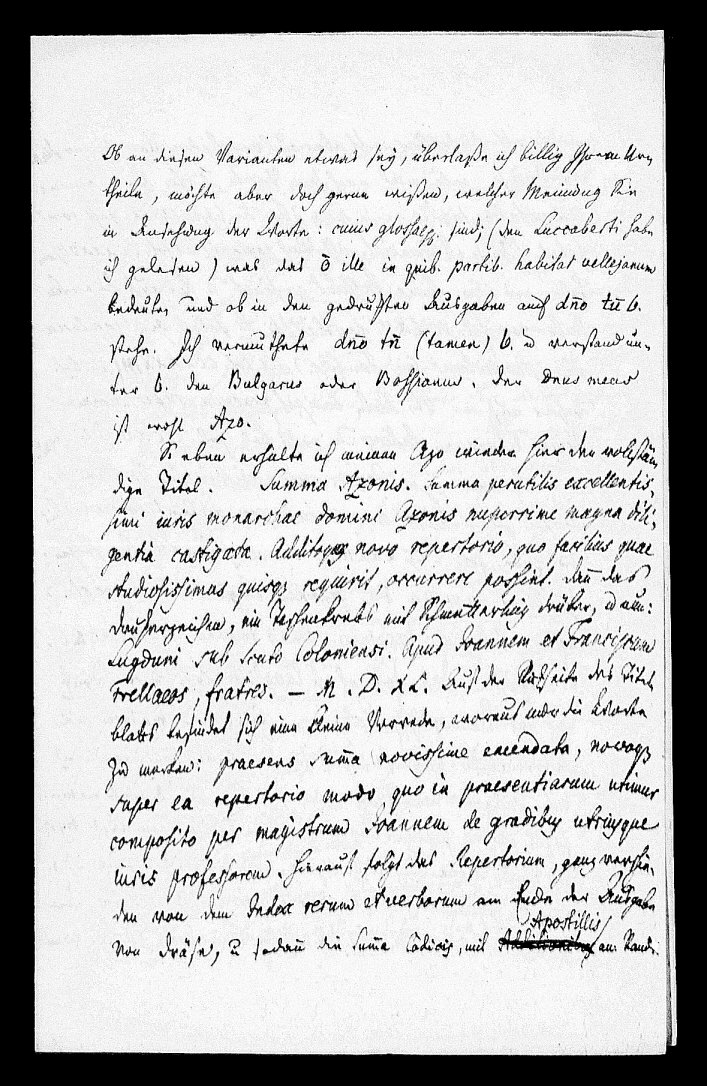 Ob an diesen Varianten etwas sey, überlaße ich billig Ihrem Ur-
theile, möchte aber doch gerne wißen, welcher Meinung Sie
in Ansehung der Worte: cuius glossae sind; (den Luccoberti habe
ich gelesen) was das ō ille in quib. partib. habitat vellejanum
bedeute, und ob in den gedruckten Ausgaben auch dño tñ b.
stehe. Ich vermuthete dño tñ (tamen) b. u verstand un-
ter b. den Bulgarus oder Bossianus. Der Deus meus
ist wohl Azo.
So eben erhalte ich meinen Azo wieder hier der vollstän-
dige Titel. Summa Azonis. Summa perutilis excellentis-
simi iuris monarchae domini Azonis nuperrime magna dili-
gentia castigata. Additoqꝫ novo repertorio, quo facilius quae
studiosissimus quisqꝫ requirit, occurrere possint. Dañ das
Druckerzeichen, ein Taschenkrebs mit Schmetterling drüber, u nun:
Lugduni sub scuto Coloniensi. Apud Ioannem et Franciscum
Frellaeos, fratres. — M. D. XL. Auf der Rückseite des Titel-
blatts befindet sich eine kleine Vorrede, woraus nur die Worte
zu merken: praesens summa novissime emendata, novoqꝫ
super ea repertorio modo quo in praesentiarum utimur
composito per magistrum Ioannem de gradibus utriusque
iuris professorem. Hierauf folgt das Repertorium, ganz verschie-
den von dem Index rerum et verborum am Ende der Ausgabe
Apostillis
von Dräse, u sodañ die Suma Codicis, mit Additionibus am Rande.